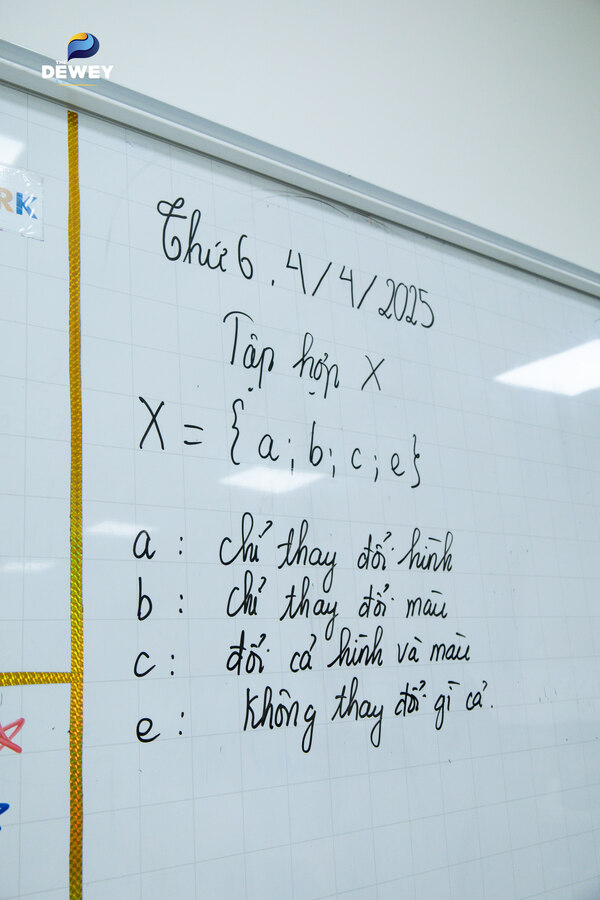 THE
DEWEY
RK
Thứ 6 . 4/4/2025
Tập hợp X
X = { a ; b ; c ; e }
a : chỉ thay đổi hình
b : chỉ thay đổi màu
c : đổi cả hình và màu
e : không thay đổi gì cả.